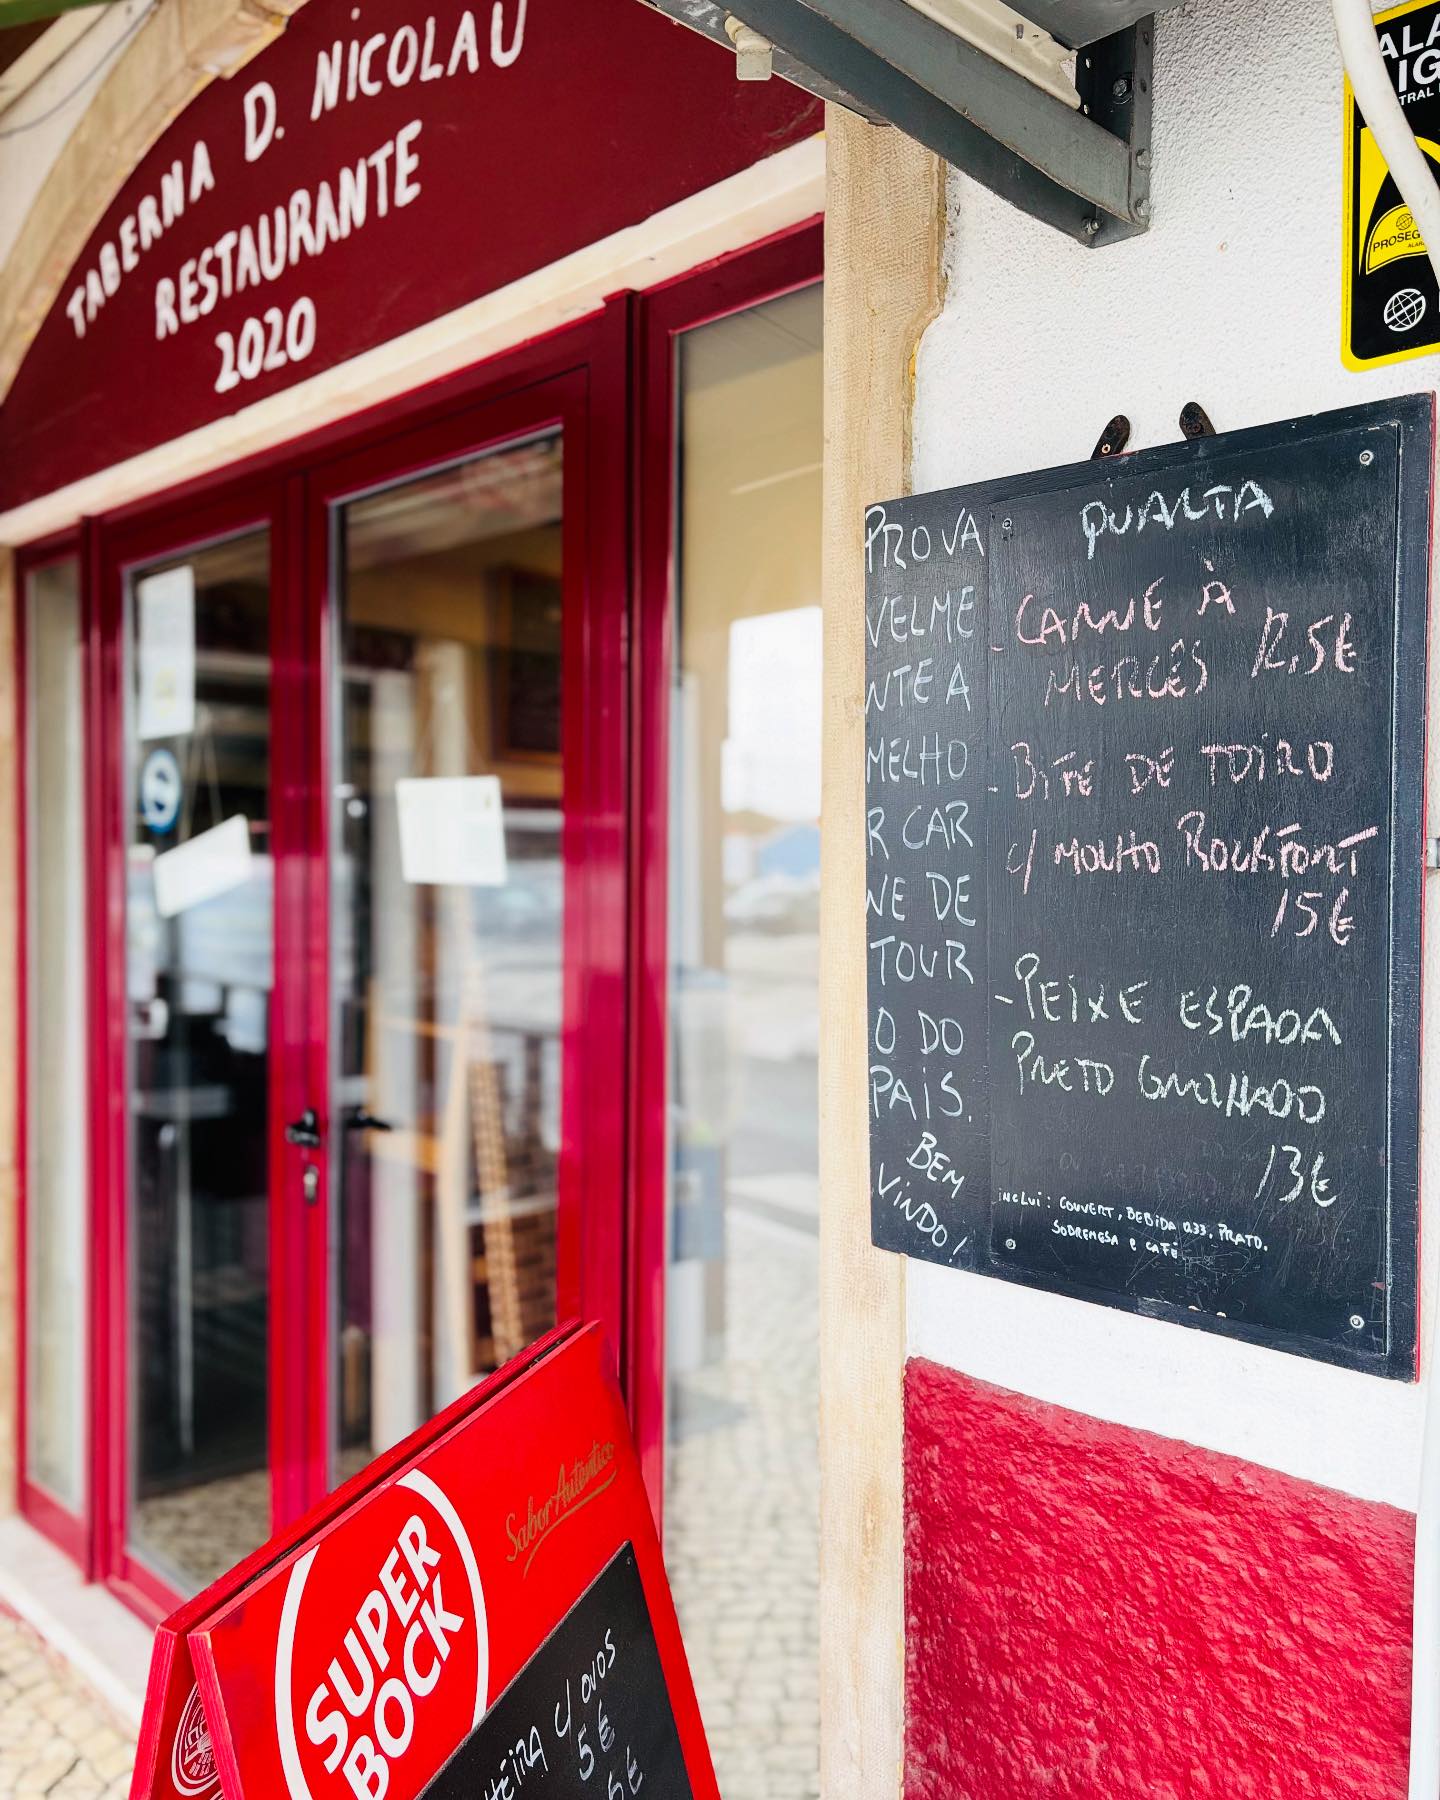 TABERNA D. NICOLAU
RESTAURANTE
2020
PROVA
VELME
NTE A
MELHO
R CAR
NE DE
TOUR
O DO
PAÍS.
BEM
VINDO!
QUARTA
- CARNE À
MERCÊS 12,5€
- BIFE DE TOIRO
C/ MOLHO ROCKFORT
15€
- PEIXE ESPADA
PRETO GRELHADO
13€
INCLUI: COUVERT, BEBIDA 0.33. PRATO.
SOBREMESA E CAFÉ
PROSEG
SUPER
BOCK
Sabor Autêntico
C/ OVOS
5€
6€